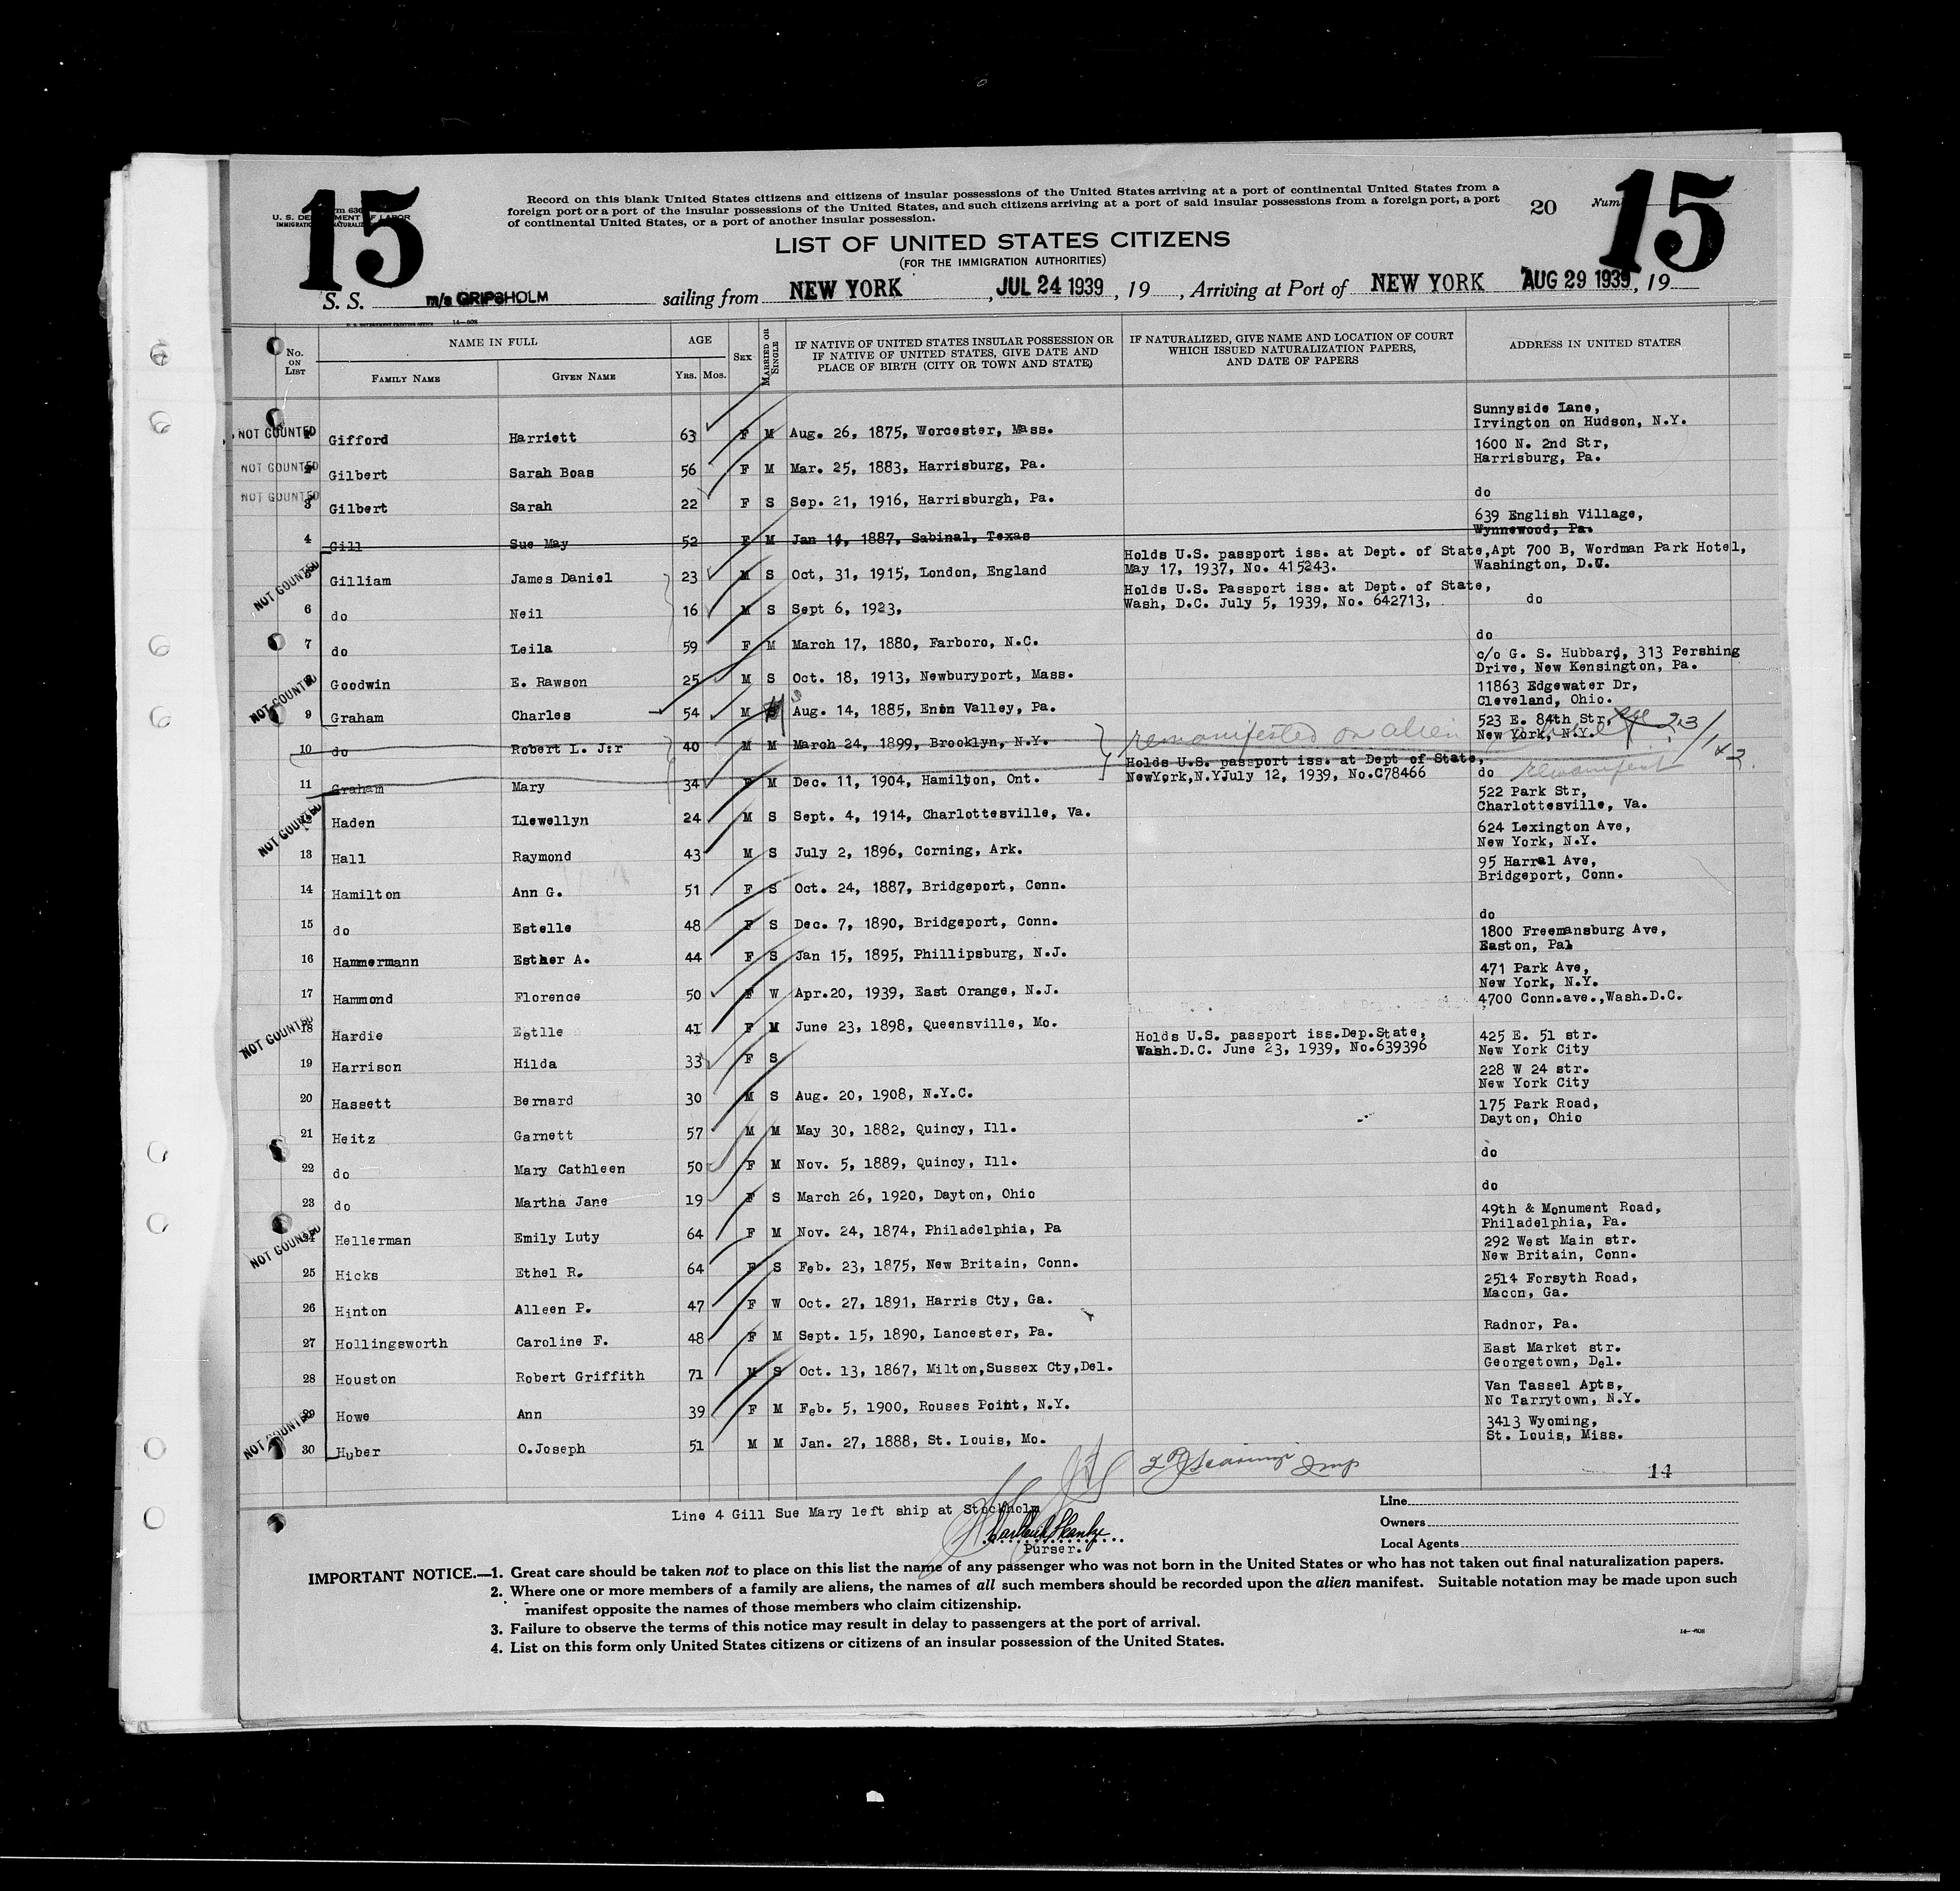 15
15
Record on this blank United States citizens and citizens of insular possessions of the United States arriving at a port of continental United States from a
foreign port or a port of the insular possessions of the United States, and such citizens arriving at a port of said insular possessions from a foreign port, a port
of continental United States, or a port of another insular possession.
20
LIST OF UNITED STATES CITIZENS
(FOR THE IMMIGRATION AUTHORITIES)
S. S. m/s GRIPSHOLM sailing from NEW YORK, JUL 24 1939, 19, Arriving at Port of NEW YORK AUG 29 1939, 19
No. ON LIST NAME IN FULL AGE SEX MARRIED OR SINGLE IF NATIVE OF UNITED STATES INSULAR POSSESSION OR IF NATIVE OF UNITED STATES, GIVE DATE AND PLACE OF BIRTH (CITY OR TOWN AND STATE) IF NATURALIZED, GIVE NAME AND LOCATION OF COURT WHICH ISSUED NATURALIZATION PAPERS, AND DATE OF PAPERS ADDRESS IN UNITED STATES
FAMILY NAME GIVEN NAME YRS. MOS.
NOT COUNTED Gifford Harriett 63 F M Aug. 26, 1875, Worcester, Mass. Sunnyside Lane, Irvington on Hudson, N.Y.
NOT COUNTED Gilbert Sarah Boas 56 F M Mar. 25, 1883, Harrisburg, Pa. 1600 N. 2nd Str, Harrisburg, Pa.
NOT COUNTED 3 Gilbert Sarah 22 F S Sep. 21, 1916, Harrisburgh, Pa. do
4 Gill Sue May 52 F M Jan 14, 1887, Sabinal, Texas 639 English Village, Wynnewood, Pa.
NOT COUNTED Gilliam James Daniel 23 M S Oct, 31, 1915, London, England Holds U.S. passport iss. at Dept. of State, May 17, 1937, No. 415243. Apt 700 B, Wordman Park Hotel, Washington, D.C.
6 do Neil 16 M S Sept 6, 1923, Holds U.S. Passport iss. at Dept. of State, Wash, D.C. July 5, 1939, No. 642713, do
7 do Leila 59 F M March 17, 1880, Farboro, N.C. do
NOT COUNTED Goodwin E. Rawson 25 M S Oct. 18, 1913, Newburyport, Mass. c/o G. S. Hubbard, 313 Pershing Drive, New Kensington, Pa.
9 Graham Charles 54 M M Aug. 14, 1885, Enon Valley, Pa. 11863 Edgewater Dr, Cleveland, Ohio.
10 do Robert L. J:r 40 M M March 24, 1899, Brooklyn, N.Y. remanifested on alien 523 E. 84th Str, New York, N.Y.
11 Graham Mary 34 F M Dec. 11, 1904, Hamilton, Ont. Holds U.S. passport iss. at Dept of State, NewYork,N.YJuly 12, 1939, No.C78466 do remanifest
NOT COUNTED Haden Llewellyn 24 M S Sept. 4, 1914, Charlottesville, Va. 522 Park Str, Charlottesville, Va.
13 Hall Raymond 43 M S July 2, 1896, Corning, Ark. 624 Lexington Ave, New York, N.Y.
14 Hamilton Ann G. 51 F S Oct. 24, 1887, Bridgeport, Conn. 95 Harral Ave, Bridgeport, Conn.
15 do Estelle 48 F S Dec. 7, 1890, Bridgeport, Conn. do
16 Hammermann Esther A. 44 F S Jan 15, 1895, Phillipsburg, N.J. 1800 Freemansburg Ave, Easton, Pal
17 Hammond Florence 50 F W Apr.20, 1939, East Orange, N.J. 471 Park Ave, New York, N.Y.
NOT COUNTED 18 Hardie Estlle 41 F M June 23, 1898, Queensville, Mo. 4700 Conn.ave.,Wash.D.C.
19 Harrison Hilda 33 F S Holds U.S. passport iss.Dep.State, Wash.D.C. June 23, 1939, No.639396 425 E. 51 str. New York City
20 Hassett Bernard 30 M S Aug. 20, 1908, N.Y.C. 228 W 24 str. New York City
21 Heitz Garnett 57 M M May 30, 1882, Quincy, Ill. 175 Park Road, Dayton, Ohio
22 do Mary Cathleen 50 F M Nov. 5, 1889, Quincy, Ill. do
23 do Martha Jane 19 F S March 26, 1920, Dayton, Ohio do
NOT COUNTED 24 Hellerman Emily Luty 64 F M Nov. 24, 1874, Philadelphia, Pa 49th & Monument Road, Philadelphia, Pa.
25 Hicks Ethel R. 64 F S Feb. 23, 1875, New Britain, Conn. 292 West Main str. New Britain, Conn.
26 Hinton Alleen P. 47 F W Oct. 27, 1891, Harris Cty, Ga. 2514 Forsyth Road, Macon, Ga.
27 Hollingsworth Caroline F. 48 F M Sept. 15, 1890, Lancester, Pa. Radnor, Pa.
28 Houston Robert Griffith 71 M S Oct. 13, 1867, Milton,Sussex Cty,Del. East Market str. Georgetown, Del.
NOT COUNTED 29 Howe Ann 39 F M Feb. 5, 1900, Rouses Point, N.Y. Van Tassel Apts, No Tarrytown, N.Y.
30 Huber O.Joseph 51 M M Jan. 27, 1888, St. Louis, Mo. 3413 Wyoming, St. Louis, Miss.
14
Line 4 Gill Sue Mary left ship at Stockholm
Purser.
Line
Owners
Local Agents
IMPORTANT NOTICE.—1. Great care should be taken not to place on this list the name of any passenger who was not born in the United States or who has not taken out final naturalization papers.
2. Where one or more members of a family are aliens, the names of all such members should be recorded upon the alien manifest. Suitable notation may be made upon such
manifest opposite the names of those members who claim citizenship.
3. Failure to observe the terms of this notice may result in delay to passengers at the port of arrival.
4. List on this form only United States citizens or citizens of an insular possession of the United States.